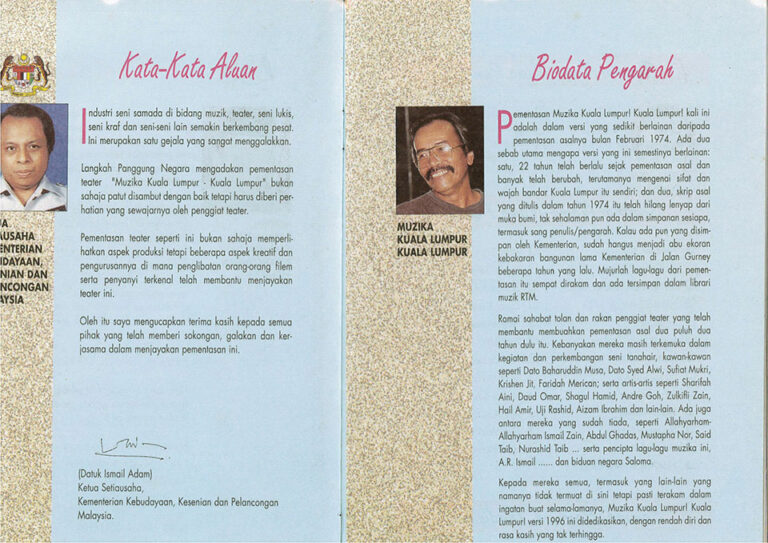 Kata-Kata Aluan
Industri seni samada di bidang muzik, teater, seni lukis,
seni kraf dan seni-seni lain semakin berkembang pesat.
Ini merupakan satu gejala yang sangat menggalakkan.
Langkah Panggung Negara mengadakan pementasan
teater "Muzika Kuala Lumpur - Kuala Lumpur" bukan
sahaja patut disambut dengan baik tetapi harus diberi per-
hatian yang sewajarnya oleh penggiat teater.
Pementasan teater seperti ini bukan sahaja memperli-
hatkan aspek produksi tetapi beberapa aspek kreatif dan
pengurusannya di mana penglibatan orang-orang filem
serta penyanyi terkenal telah membantu menjayakan
teater ini.
Oleh itu saya mengucapkan terima kasih kepada semua
pihak yang telah memberi sokongan, galakan dan ker-
jasama dalam menjayakan pementasan ini.
(Datuk Ismail Adam)
Ketua Setiausaha,
Kementerian Kebudayaan, Kesenian dan Pelancongan
Malaysia.
UA
AUSAHA
ENTERIAN
IDAYAAN,
NIAN DAN
NCONGAN
AYSIA
Biodata Pengarah
MUZIKA
KUALA LUMPUR
KUALA LUMPUR
Pementasan Muzika Kuala Lumpur! Kuala Lumpur! kali ini
adalah dalam versi yang sedikit berlainan daripada
pementasan asalnya bulan Februari 1974. Ada dua
sebab utama mengapa versi yang ini semestinya berlainan:
satu, 22 tahun telah berlalu sejak pementasan asal dan
banyak telah berubah, terutamanya mengenai sifat dan
wajah bandar Kuala Lumpur itu sendiri; dan dua, skrip asal
yang ditulis dalam tahun 1974 itu telah hilang lenyap dari
muka bumi, tak sehalaman pun ada dalam simpanan sesiapa,
termasuk sang penulis/pengarah. Kalau ada pun yang disim-
pan oleh Kementerian, sudah hangus menjadi abu ekoran
kebakaran bangunan lama Kementerian di Jalan Gurney
beberapa tahun yang lalu. Mujurlah lagu-lagu dari pemen-
tasan itu sempat dirakam dan ada tersimpan dalam librari
muzik RTM.
Ramai sahabat tolan dan rakan penggiat teater yang telah
membantu membuahkan pementasan asal dua puluh dua
tahun dulu itu. Kebanyakan mereka masih terkemuka dalam
kegiatan dan perkembangan seni tanahair, kawan-kawan
seperti Dato Baharuddin Musa, Dato Syed Alwi, Sufiat Mukri,
Krishen Jit, Faridah Merican; serta artis-artis seperti Sharifah
Aini, Daud Omar, Shagul Hamid, Andre Goh, Zulkifli Zain,
Hail Amir, Uji Rashid, Aizam Ibrahim dan lain-lain. Ada juga
antara mereka yang sudah tiada, seperti Allahyarham-
Allahyarham Ismail Zain, Abdul Ghadas, Mustapha Nor, Said
Taib, Nurashid Taib ... serta pencipta lagu-lagu muzika ini,
A.R. Ismail ...... dan biduan negara Saloma.
Kepada mereka semua, termasuk yang lain-lain yang
namanya tidak termuat di sini tetapi pasti terakam dalam
ingatan buat selama-lamanya, Muzika Kuala Lumpur! Kuala
Lumpur! versi 1996 ini didedikasikan, dengan rendah diri dan
rasa kasih yang tak terhingga.